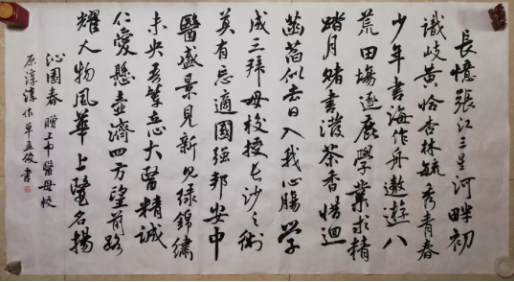 長憶張江三星河畔初
識岐黄恰杏林毓秀青春
少年書海作舟遨遊八
荒田場逐鹿學業求精
踏月賭書潑茶香惜迴
菡萏似去日入我心腸學
成三拜母校授長沙之術
莫有忘適國强邦安中
醫盛景見新綠錦繡
未央吾輩志大醫精誠
仁愛懸壺濟四方望前路
耀人物風華上醫名揚
沁園春 贈上中醫母校
原淳淳作單孟俊書